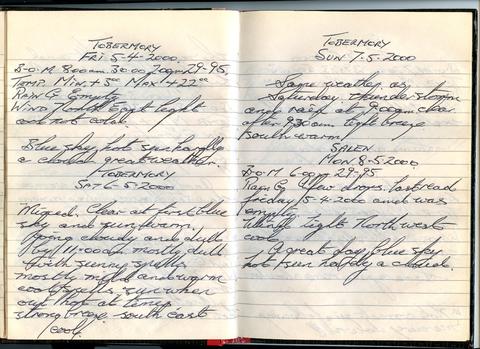 TOBERMORY
FRI 5-4-2000
B-O-M 8.00am. 30.00 20pm 29-95,
TEMP. MIN. + 5°° MAX + 22°°
RAIN G Empty
WIND North East light
cool not cold.
Blue sky, hot sun hardly
a cloud great weather.
TOBERMORY
SAT 6-5-2000
Mixed. Clear at first blue
sky and sun warm,
going cloudy and dull
by 11.00am mostly dull
with sunny spells
mostly mild and warm
cool spells, sun when
out hot at times
strong breeze south east
cool.
TOBERMORY
SUN 7-5-2000
Same weather as
Saturday. thunderstorm
and rain at 9.00am clear
after 9.30am light breeze
south warm
SALEN
MON 8-5-2000
B-O-M 6.00pm 29-95
Rain G few drops. last read
friday 5-4-2000 and was
empty
Wind light North west
cool
A great day, blue sky
hot sun hardly a cloud.